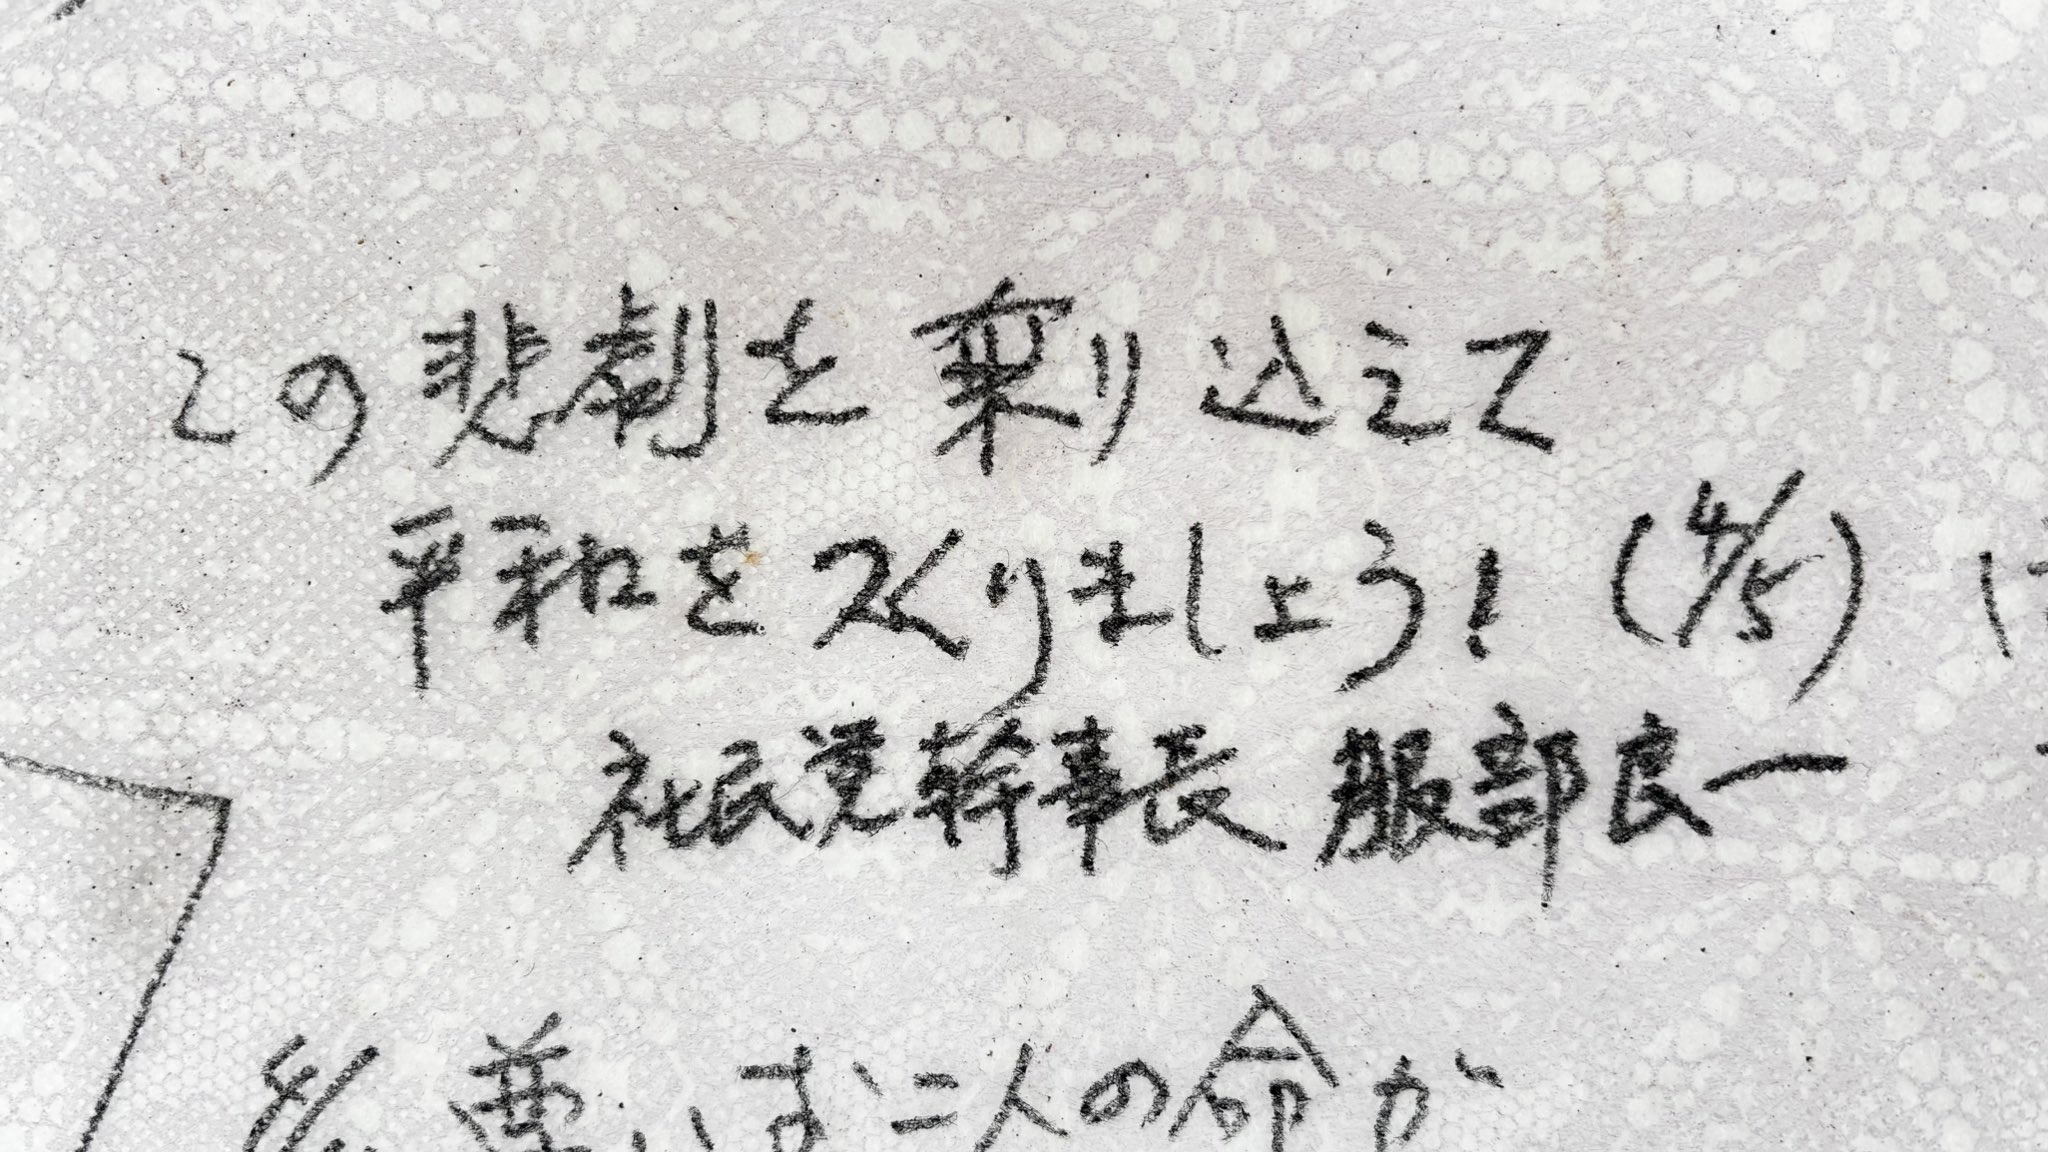 この悲劇を乗り込えて
平和をつくりましょう！ (4/5)
社民党幹事長 服部良一
尊い お二人の命が